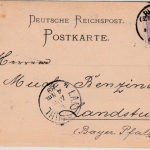 DEUTSCHE REICHSPOST.
POSTKARTE.
Herrn
Benzino
Landstuhl
(Bayer Pfalz)